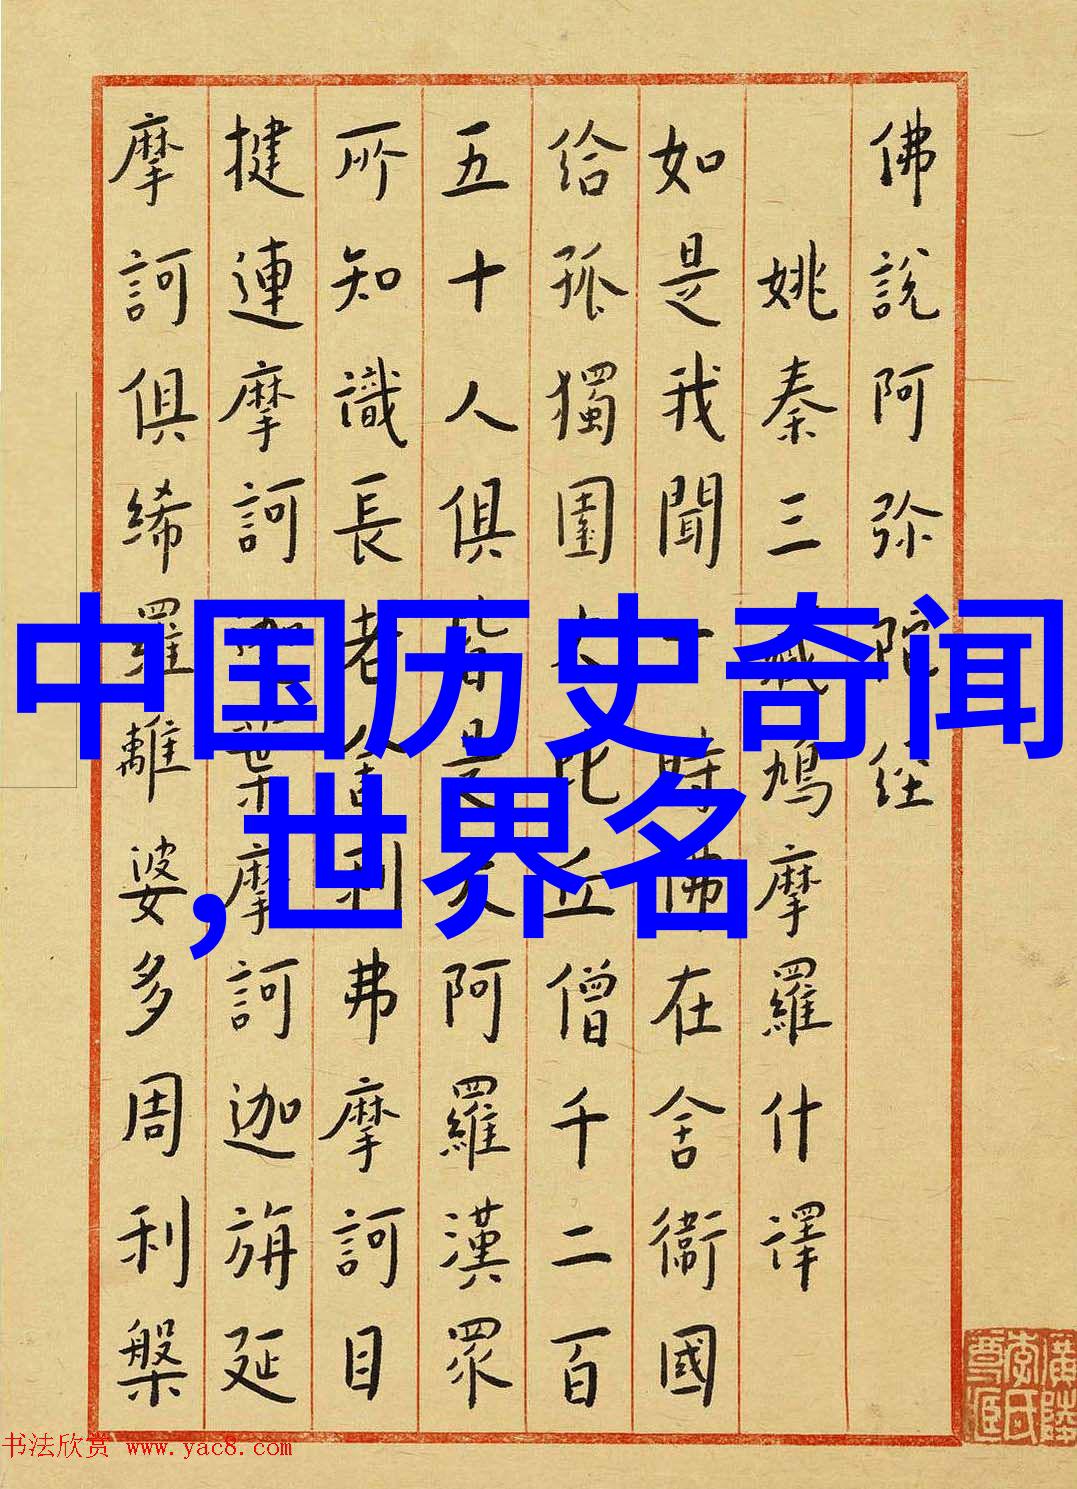 佛說阿弥陀经
姚秦三藏鳩摩羅什譯
如是我聞一時佛在舍衛國
给孤獨園大比丘僧千二百
五十人俱皆是大阿羅漢眾
所知識長老舍利弗摩訶目
揵連摩訶迦葉摩訶迦旃延
摩訶俱絺羅離婆多周利槃
中国历史奇闻
,世界名
书法欣赏 www.yac8.com